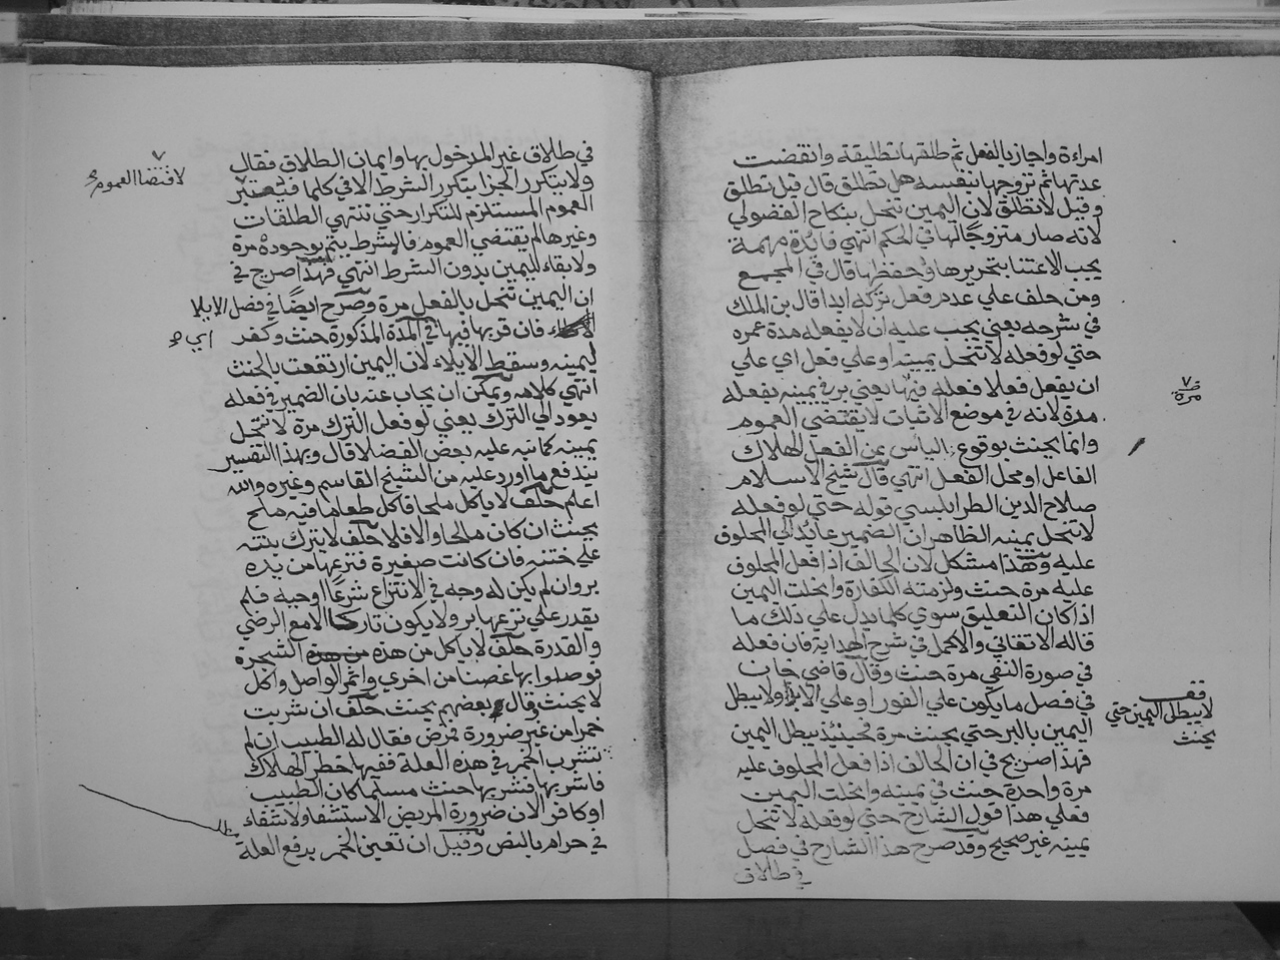 امراءة واجاز بالفعل ثم طلقها تطليقة وانقضت
عدتها ثم تزوجها بنفسه هل تطلق قال قيل تطلق
وقيل لا تطلق لان اليمين تنحل بنكاح الفضولي
لانه صار متزوجا لها في الحكم انتهي فايدة مهمة
يجب الاعتنا بتحريرها وحفظها قال في المجمع
ومن حلف علي عدم فعل تركه ابدا قال بن الملك
في شرحه يعني يجب عليه ان لا يفعله مدة عمره
حتي لو فعله لا تنحل يمينه او علي فعل اي علي
ان يفعل فعلا ففعله فيها يعني بر في يمينه بفعله
مرة لانه في موضع الاثبات لا يقتضي العموم
وانما يحنث بوقوع الياس عن الفعل لهلاك
الفاعل او محل الفعل انتهي قال شيخ الاسلام
صلاح الدين الطرابلسي قوله حتي لو فعله
لا تنحل يمينه الظاهر ان الضمير عايد الي المحلوف
عليه وهذا مشكل لان الحالف اذا فعل المحلوف
عليه مرة حنث ولزمته الكفارة وانحلت اليمين
اذا كان التعليق سوي كلما يدل علي ذلك ما
قاله الاتقاني والاكمل في شرح الهداية فان فعله
في صورة النفي مرة حنث وقال قاضي خان
في فصل ما يكون علي الفور او علي الابد ولا يبطل
اليمين بالبر حتي يحنث مرة فحينيذ يبطل اليمين
فهذا صريح في ان الحالف اذا فعل المحلوف عليه
مرة واحدة حنث في يمينه وانحلت اليمين
فعلي هذا قول الشارح حتي لو فعله لا تنحل
يمينه غير صحيح وقد صرح هذا الشارح في فصل
في طلاق
مرة
قف
لا يبطل اليمين حتي
يحنث
في طلاق غير المدخول بها وايمان الطلاق فقال
ولا يتكرر الجزا بتكرر الشرط الا في كلما فيعتبر
العموم المستلزم للتكرار حتي تنتهي الطلقات
وغيرها لم يقتضي العموم فالشرط يتم بوجوده مرة
ولا بقاء لليمين بدون الشرط انتهي فهذا صريح في
ان اليمين تنحل بالفعل مرة وصرح ايضا في فصل الايلا
فان قربها فيها في المدة المذكورة حنث وكفر
ليمينه وسقط الايلاء لان اليمين ارتفعت بالحنث
انتهي كلامه ويمكن ان يجاب عنه بان الضمير في فعله
يعود الي الترك يعني لو فعل الترك مرة لا تنحل
يمينه كما نبه عليه بعض الفضلا قال وبهذا التفسير
يندفع ما اورد عليه من الشيخ القاسم وغيره والله
اعلم حلف لا ياكل ملحا فاكل طعاما فيه ملح
يحنث ان كان مالحا والا فلا حلف لا يترك بنته
علي ختنه فان كانت صغيرة فنزعها من يده
بر وان لم يكن له وجه في الانتزاع شرعا او جبه فلم
يقدر علي نزعها بر ولا يكون تاركا الا مع الرضي
والقدرة حلف لا ياكل من هذه الشجرة
فوصلوا بها غصنا من اخري واثمر الواصل واكل
لا يحنث وقال بعضهم يحنث حلف ان شربت
خمرا من غير ضرورة فمرض فقال له الطبيب ان لم
تشرب الخمر في هذه العلة ففيها خطر الهلاك
فاشربها فشربها حنث مسلما كان الطبيب
او كافرا لان ضرورة المريض الاستشفا ولا شفاء
في حرام بالنص وقيل ان تعين الخمر بدفع العلة
لاقتضا العموم
اي